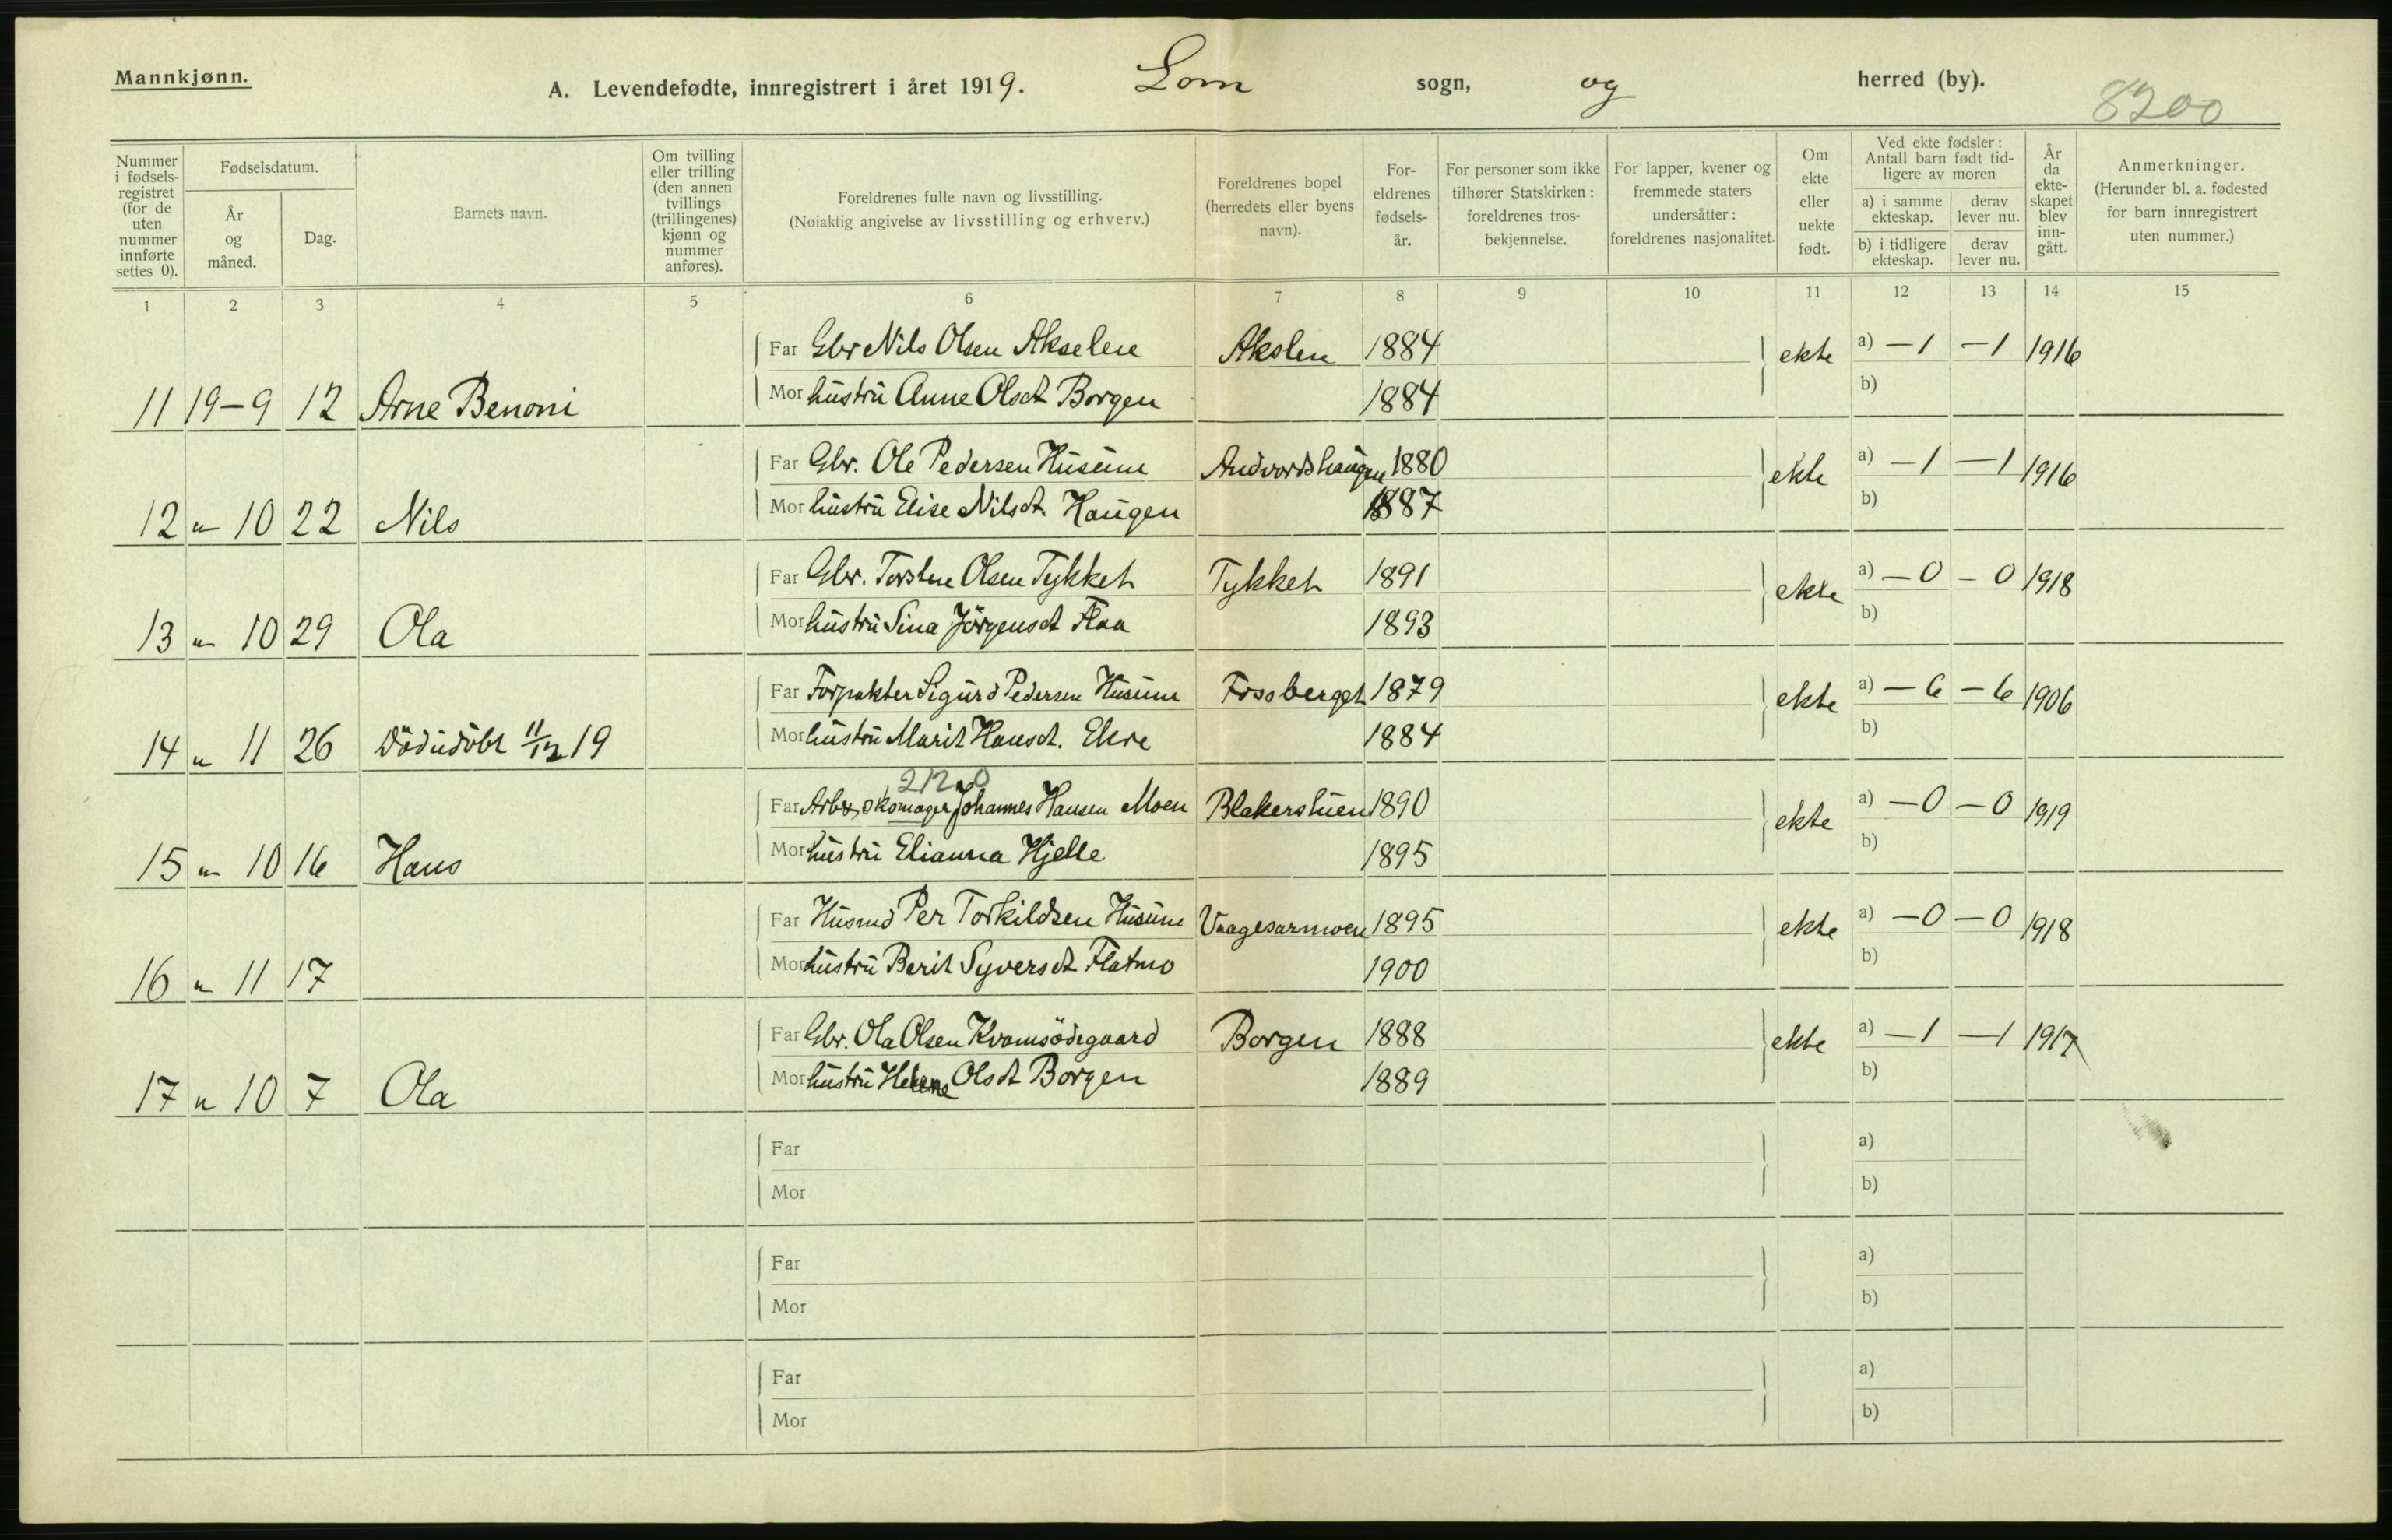 Mannkjønn.
A. Levendefødte, innregistrert i året 1919. Lom sogn, og herred (by).
8200
Nummer i fødselsregistret (for de uten nummer innførte settes 0).
Fødselsdatum.
År og måned.
Dag.
Barnets navn.
Om tvilling eller trilling (den annen tvillings (trillingenes) kjønn og nummer anføres).
Foreldrenes fulle navn og livsstilling.
(Nøiaktig angivelse av livsstilling og erhverv.)
Foreldrenes bopel (herredets eller byens navn).
Foreldrenes fødselsår.
For personer som ikke tilhører Statskirken: foreldrenes trosbekjennelse.
For lapper, kvener og fremmede staters undersåtter: foreldrenes nasjonalitet.
Om ekte eller uekte født.
Ved ekte fødsler: Antall barn født tidligere av moren
a) i samme ekteskap. derav lever nu.
b) i tidligere ekteskap. derav lever nu.
År da ekteskapet blev inngått.
Anmerkninger.
(Herunder bl. a. fødested for barn innregistrert uten nummer.)
1 2 3 4 5 6 7 8 9 10 11 12 13 14 15
Far Gbr Nils Olsen Akselen Akslen 1884 ekte a) —1 —1 1916
11 19-9 12 Arne Benoni Mor hustru Anne Olsdt Borgen 1884 b)
Far Gbr. Ole Pedersen Husum Andvordshaugen 1880 ekte a) —1 —1 1916
12 " 10 22 Nils Mor hustru Elise Nilsdt. Haugen 1887 b)
Far Gbr. Torsten Olsen Tykket Tykket 1891 ekte a) —0 —0 1918
13 " 10 29 Ola Mor hustru Sina Jörgensdt Flaa 1893 b)
Far Forpakter Sigurd Pedersen Husum Fossberget 1879 ekte a) —6 —6 1906
14 " 11 26 Död udöbt 11/12 19 Mor hustru Marit Hansdt. Ekre 1884 b)
2120
Far Arb., skomager Johannes Hansen Moen Blakerstuen 1890 ekte a) —0 —0 1919
15 " 10 16 Hans Mor hustru Elianna Hjelle 1895 b)
Far Husmd Per Torkildsen Husum Vaagesarmoen 1895 ekte a) —0 —0 1918
16 " 11 17 Mor hustru Berit Syversdt Flatmo 1900 b)
Far Gbr. Ola Olsen Kvamsödegaard Borgen 1888 ekte a) —1 —1 1917
17 " 10 7 Ola Mor hustru Helene Olsdt Borgen 1889 b)
Far a)
Mor b)
Far a)
Mor b)
Far a)
Mor b)